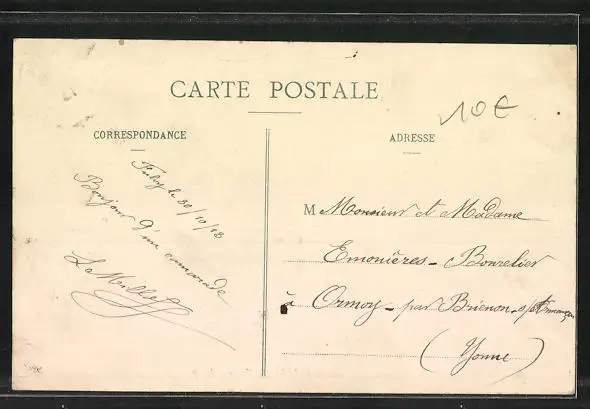 CARTE POSTALE
10€
CORRESPONDANCE
ADRESSE
le 30/10/18
Bonjour d'un camarade
L Millet
M Monsieur et Madame
Emonières - Bourelier
à Ormoy - par Brienon s/
(Yonne)